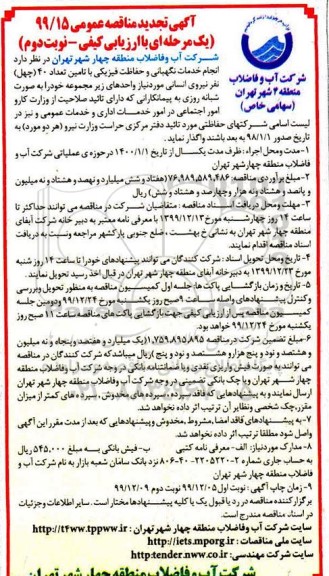 آگهی تجدید مناقصه عمومی ۹۹/۱۵
(یک مرحله‌ای با ارزیابی کیفی - نوبت دوم)
شرکت آب و فاضلاب
منطقه ۴ شهر تهران
(سهامی خاص)
شرکت آب و فاضلاب منطقه چهار شهر تهران در نظر دارد
انجام خدمات نگهبانی و حفاظت فیزیکی با تامین تعداد ۴۰ (چهل)
نفر نیروی انسانی موردنیاز واحدهای زیر مجموعه خود را به صورت
شبانه روزی به پیمانکارانی که دارای تائید صلاحیت از وزارت کار و
امور اجتماعی در امور خدمات اداری و خدمات عمومی و نیز در
لیست اسامی شرکتهای حفاظتی مورد تائید دفتر مرکزی حراست وزارت نیرو (هر دو مورد) به
تاریخ صدور ۹۸/۱/۱ به بعد باشند واگذار نماید.
۱- مدت محل اجراء: ظرف مدت یکسال از تاریخ ۱۴۰۰/۱/۱ در حوزه ی عملیاتی شرکت آب و
فاضلاب منطقه چهار شهر تهران
۲- مبلغ برآوردی مناقصه: ۷۶،۹۸۹،۵۸۹،۴۸۶ (هفتاد و شش میلیارد و نهصد و هشتاد و نه میلیون
و پانصد و هشتاد و نه هزار و چهارصد و هشتاد و شش) ریال
۳- مهلت و محل دریافت اسناد مناقصه: متقاضیان شرکت در مناقصه می توانند حداکثر تا
ساعت ۱۴ روز چهارشنبه مورخ ۱۳۹۹/۱۲/۱۳ با معرفی نامه معتبر به دبیر خانه شرکت آبفای
منطقه چهار شهر تهران به نشانی خ بهشت، ضلع جنوبی پارکشهر مراجعه و نسبت به دریافت
اسناد مناقصه اقدام نمایند.
۴- تاریخ و محل تحویل اسناد: شرکت کنندگان می توانند پیشنهادهای خود را تا ساعت ۱۴ روز شنبه
مورخ ۱۳۹۹/۱۲/۲۳ به دبیرخانه آبفای منطقه چهار شهر تهران در قبال اخذ رسید تحویل نمایند.
۵- تاریخ و زمان بازگشایی پاکت ها: جلسه اول کمیسیون مناقصه به منظور تحویل و بررسی
و کنترل پیشنهادهای واصله ساعت ۹ صبح روز یکشنبه مورخ ۹۹/۱۲/۲۴ و دومین جلسه
کمیسیون مناقصه پس از ارزیابی کیفی جهت بازگشایی پاکت های مناقصه ساعت ۱۱ صبح روز
یکشنبه مورخ ۹۹/۱۲/۲۴ خواهد بود.
۶- مبلغ تضمین شرکت در مناقصه ۱،۷۵۹،۸۹۵،۸۹۵ (یک میلیارد و هفتصد و پنجاه و نه میلیون
و هشتصد و نود و پنج هزار و هشتصد و نود و پنج) ریال میباشد که شرکت کنندگان در مناقصه
می توانند به صورت فیش واریزی نقدی و یا ضمانتنامه بانکی در وجه شرکت آب و فاضلاب منطقه
چهار شهر تهران و یا چک بانکی تضمینی در وجه شرکت آب و فاضلاب منطقه چهار شهر تهران
ارسال نمایند و به پیشنهادهایی که فاقد سپرده، سپرده های مخدوش، سپرده های کمتر از میزان
مقرر، چک شخصی و نظایر آن ترتیب اثر داده نخواهد شد.
۷- به پیشنهادهای فاقد امضا، مشروط، مخدوش و پیشنهادهایی که بعد از مدت مقرر این آگهی
واصل شود مطلقا ترتیب اثر داده نخواهد شد.
۸- مدارک موردنیاز: الف- معرفی نامه کتبی ب- فیش بانکی به مبلغ ۵۴۵،۰۰۰ ریال
به حساب جاری شماره ۸۰۶ نزد بانک سامان شعبه بازار به نام شرکت آب و
فاضلاب منطقه چهار شهر تهران
۹- زمان چاپ آگهی: نوبت اول ۹۹/۱۲/۰۵ نوبت دوم ۹۹/۱۲/۰۹
برگزار کننده مناقصه در رد یا قبول یک یا کلیه پیشنهادها مختار است. سایر اطلاعات و جزئیات
در اسناد مناقصه مندرج است.
سایت شرکت آب و فاضلاب منطقه چهار شهر تهران: http://t4ww.tppww.ir
سایت ملی مناقصات: http://iets.mporg.ir
سایت شرکت مهندسی: http:tender.nww.co.ir
شرکت آب و فاضلاب منطقه چهار شهر تهران